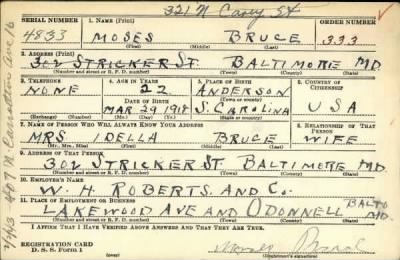 321 N Carey St
SERIAL NUMBER 1. NAME (Print) ORDER NUMBER
4833 MOSES BRUCE 333
(First) (Middle) (Last)
2. ADDRESS (Print)
302 STRICKER ST. BALTIMORE MD
(Number and street or R. F. D. number) (Town) (County) (State)
3. TELEPHONE 4. AGE IN YEARS 5. PLACE OF BIRTH 6. COUNTRY OF CITIZENSHIP
NONE 22 ANDERSON
DATE OF BIRTH (Town or county)
MAR 29 1918 S. CAROLINA USA
(Exchange) (Number) (Mo.) (Day) (Yr.) (State or country)
7. NAME OF PERSON WHO WILL ALWAYS KNOW YOUR ADDRESS 8. RELATIONSHIP OF THAT PERSON
MRS. DELLA BRUCE WIFE
(Mr., Mrs., Miss) (First) (Middle) (Last)
9. ADDRESS OF THAT PERSON
302 STRICKER ST. BALTIMORE MD.
(Number and street or R. F. D. number) (Town) (County) (State)
10. EMPLOYER'S NAME
W. H. ROBERTS. AND CO.
11. PLACE OF EMPLOYMENT OR BUSINESS BALTO
LAKEWOOD AVE AND ODONNELL MD.
(Number and street or R. F. D. number) (Town) (County) (State)
I AFFIRM THAT I HAVE VERIFIED ABOVE ANSWERS AND THAT THEY ARE TRUE.
REGISTRATION CARD
D. S. S. Form 1
(Registrant's signature)